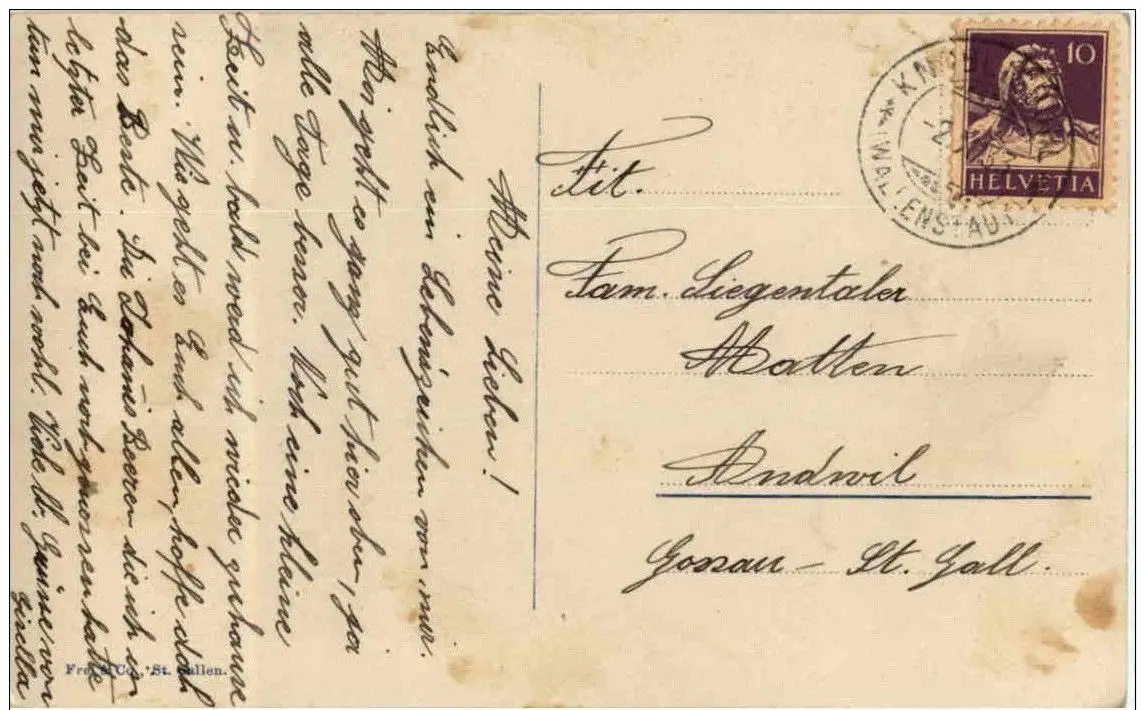 Meine Lieben!
Endlich ein Lebenszeichen von mir.
Mir geht es ganz gut hier oben, ja
alle Tage besser. Noch eine kleine
Zeit u. bald werd ich wieder zuhause
sein. Wie geht es Euch allen, hoffe doch
das Beste. Die Johannis Beeren die ich in
letzter Zeit bei Euch noch genossen hatte
tun mir jetzt noch wohl. Viele b. Grüsse von
Gisella
Tit.
Fam. Siegentaler
Matten
Andwil
Gossau - St. Gall.
10
HELVETIA
WALLENSTADT
Frei & Co., St. Gallen.